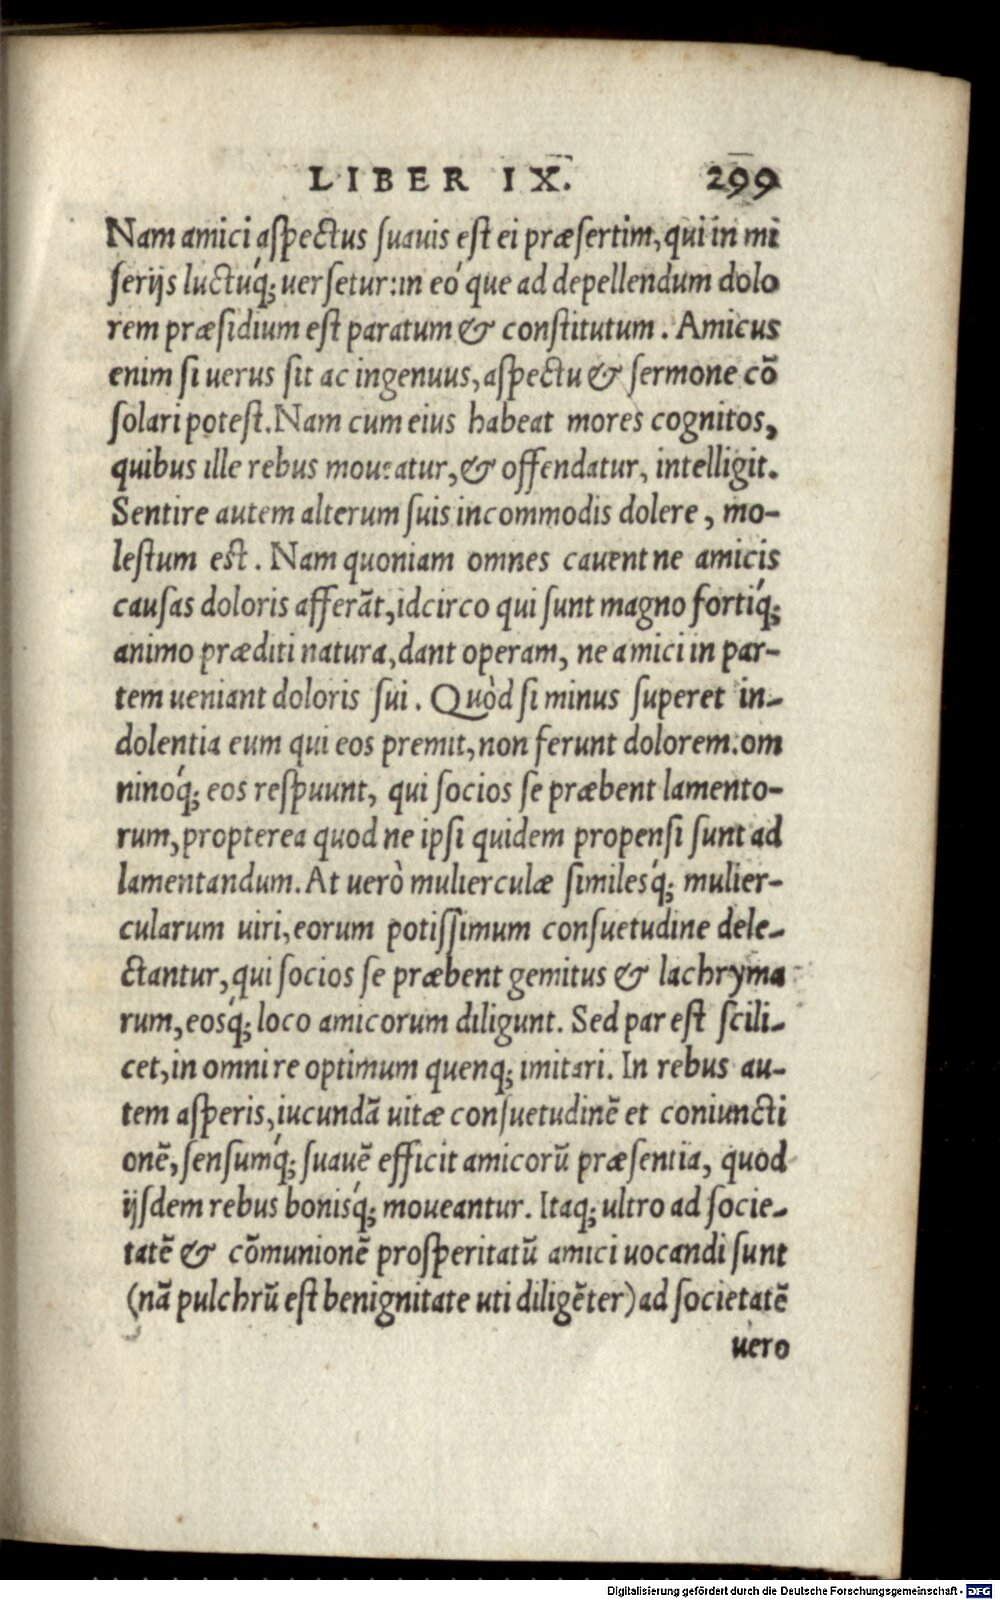 LIBER IX. 299
Nam amici aspectus suauis est ei præsertim, qui in mi
serijs luctuq́; uersetur: in eó que ad depellendum dolo
rem præsidium est paratum & constitutum. Amicus
enim si uerus sit ac ingenuus, aspectu & sermone cō
solari potest. Nam cum eius habeat mores cognitos,
quibus ille rebus moueatur, & offendatur, intelligit.
Sentire autem alterum suis incommodis dolere, mo-
lestum est. Nam quoniam omnes cauent ne amicis
causas doloris afferāt, idcirco qui sunt magno fortiq́;
animo præditi natura, dant operam, ne amici in par-
tem ueniant doloris sui. Quòd si minus superet in-
dolentia eum qui eos premit, non ferunt dolorem. om
ninoq́; eos respuunt, qui socios se præbent lamento-
rum, propterea quod ne ipsi quidem propensi sunt ad
lamentandum. At uerò mulierculæ similesq́; mulier-
cularum uiri, eorum potissimum consuetudine dele-
ctantur, qui socios se præbent gemitus & lachryma
rum, eosq́; loco amicorum diligunt. Sed par est scili-
cet, in omni re optimum quenq; imitari. In rebus au-
tem asperis, iucundā uitæ consuetudinē et coniuncti
onē, sensumq́; suauē efficit amicorū præsentia, quod
ijsdem rebus bonisq́; moueantur. Itaq; ultro ad socie-
tatē & cōmunionē prosperitatū amici uocandi sunt
(nā pulchrū est benignitate uti diligēter) ad societatē
uero
Digitalisierung gefördert durch die Deutsche Forschungsgemeinschaft - DFG